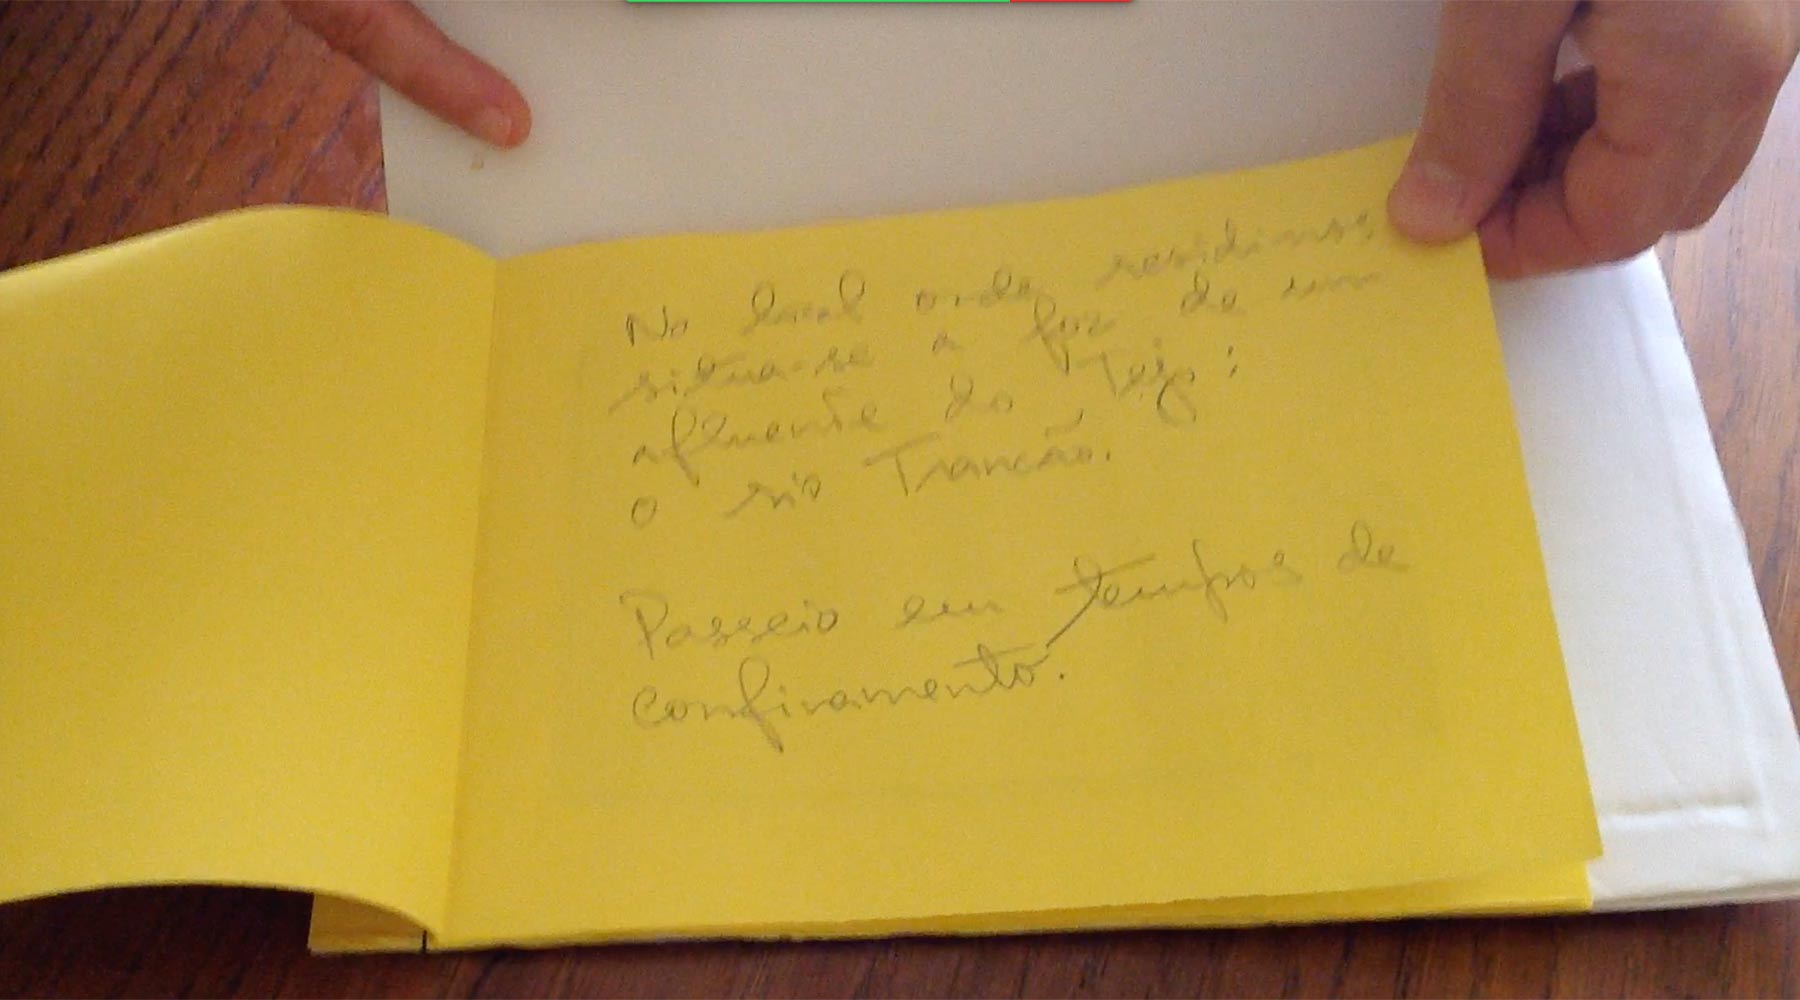 No local onde residimos
situa-se a foz de um
afluente do Tejo:
o rio Trancão.
Passeio em tempos de
confinamento.